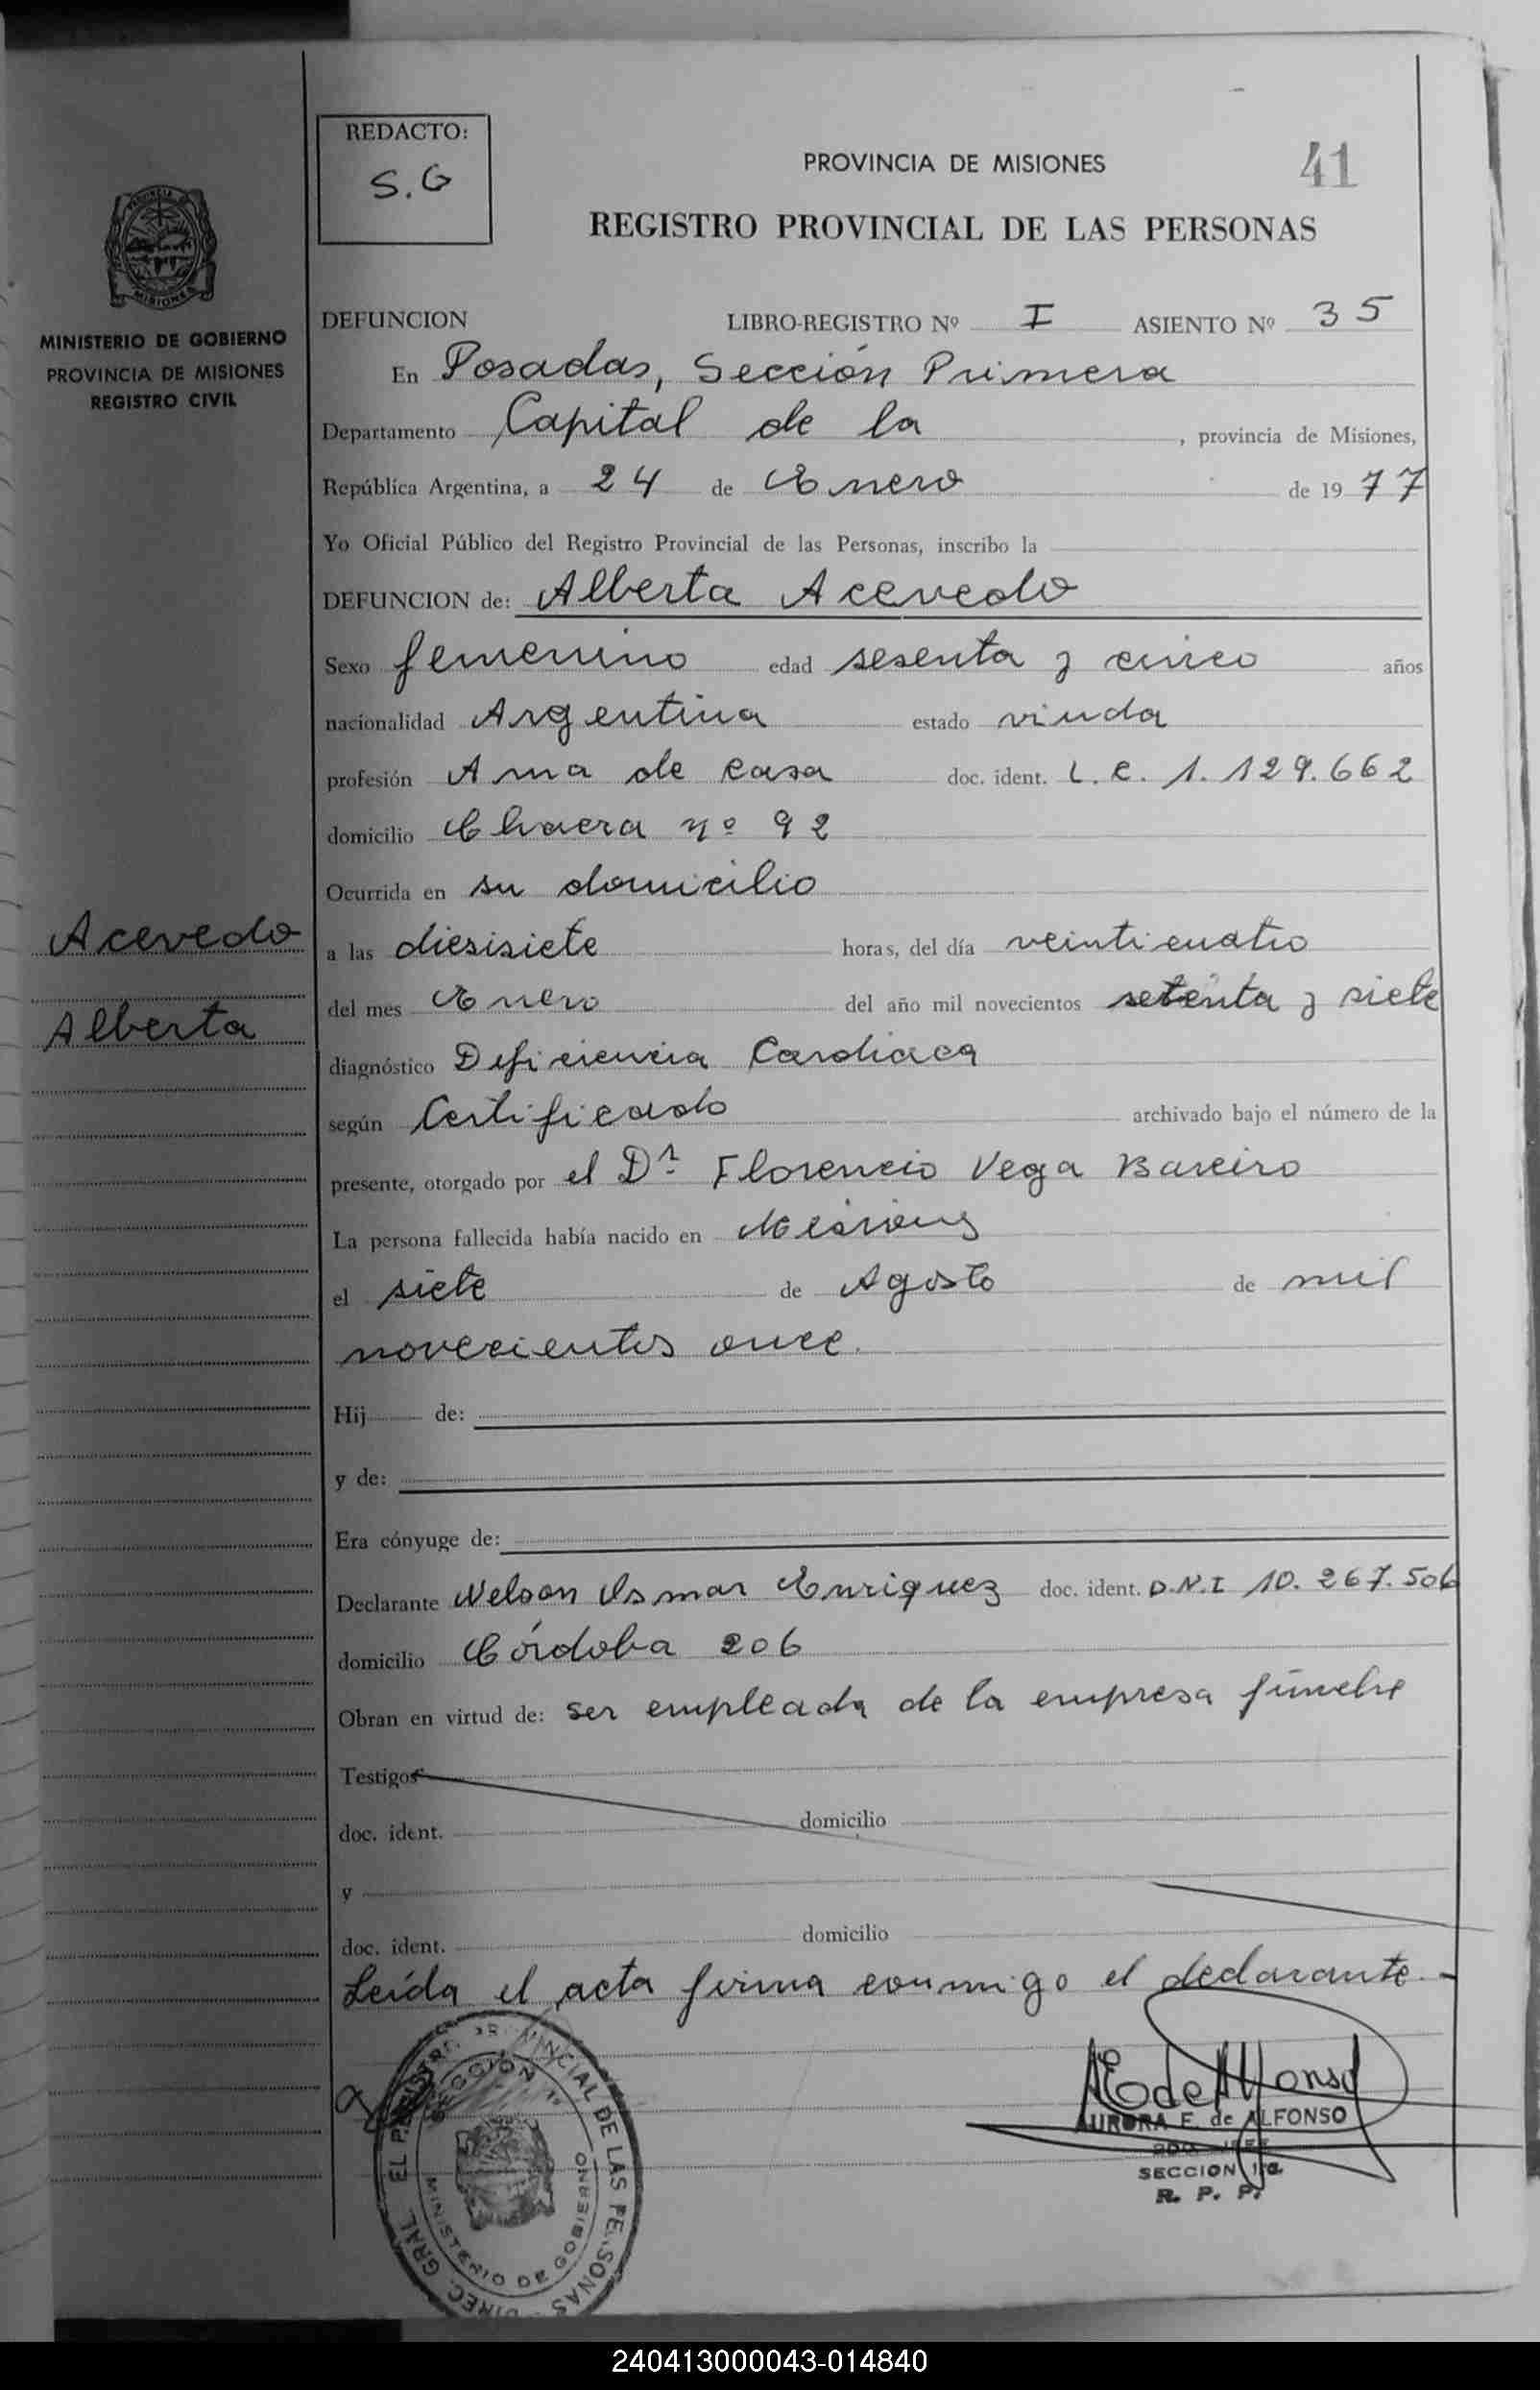 REDACTO:
S.G
PROVINCIA DE MISIONES
41
REGISTRO PROVINCIAL DE LAS PERSONAS
MISIONES
MINISTERIO DE GOBIERNO
PROVINCIA DE MISIONES
REGISTRO CIVIL
DEFUNCION LIBRO-REGISTRO Nº I ASIENTO Nº 35
En Posadas, Sección Primera
Departamento Capital de la, provincia de Misiones,
República Argentina, a 24 de Enero de 1977
Yo Oficial Público del Registro Provincial de las Personas, inscribo la
DEFUNCION de: Alberta Acevedo
Sexo femenino edad sesenta y cinco años
nacionalidad Argentina estado viuda
profesión Ama de casa doc. ident. L.C. 1.129.662
domicilio Chacra nº 92
Ocurrida en su domicilio
Acevedo
a las diesisiete horas, del día veinticuatro
del mes Enero del año mil novecientos setenta y siete
Alberta
diagnóstico Deficiencia Cardiaca
según Certificado archivado bajo el número de la
presente, otorgado por el Dr Florencio Vega Bareiro
La persona fallecida había nacido en Misiones
el siete de Agosto de mil
novecientos once.
Hij de:
y de:
Era cónyuge de:
Declarante Nelson Osmar Enriquez doc. ident. D.N.I 10.267.506
domicilio Córdoba 206
Obran en virtud de: ser empleada de la empresa fúnebre
Testigos
doc. ident. domicilio
y
doc. ident. domicilio
Leída el acta firma conmigo el declarante.-
DIREC. GRAL. DEL REGISTRO PROVINCIAL DE LAS PERSONAS
SECCION 1ª
MINISTERIO DE GOBIERNO
AE de Alfonso
AURORA E. de ALFONSO
SECCION 1ra
R. P. P.
240413000043-014840